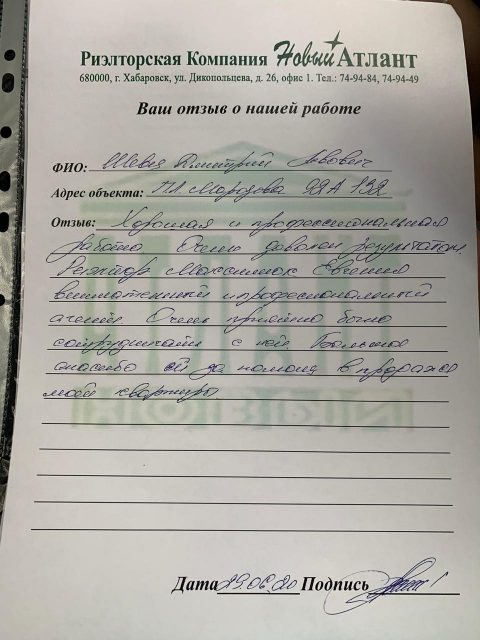 Риэлторская Компания Новый Атлант
680000, г. Хабаровск, ул. Дикопольцева, д. 26, офис 1. Тел.: 74-94-84, 74-94-49
Ваш отзыв о нашей работе
ФИО: Швец Дмитрий Львович
Адрес объекта: П.Л. Морозова 92А 132
Отзыв: Хорошая и профессиональная
работа Очень доволен результатом.
Риэлтор Максимюк Евгения
внимательный и профессиональный
агент. Очень приятно было
сотрудничать с ней Большое
спасибо ей за помощь в продаже
моей квартиры
Дата 29.06.20 Подпись